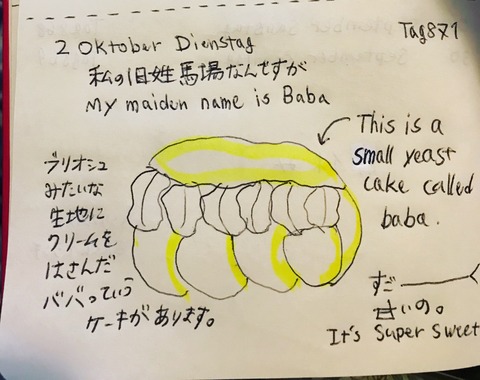 Tag871
2 Oktober Dienstag
私の旧姓馬場なんですが
My maidun name is Baba
This is a
small yeast
cake called
baba.
ブリオシュ
みたいな
生地に
クリームを
はさんだ
ババっていう
ケーキがあります。
すご
甘いの。
It's Super Sweet